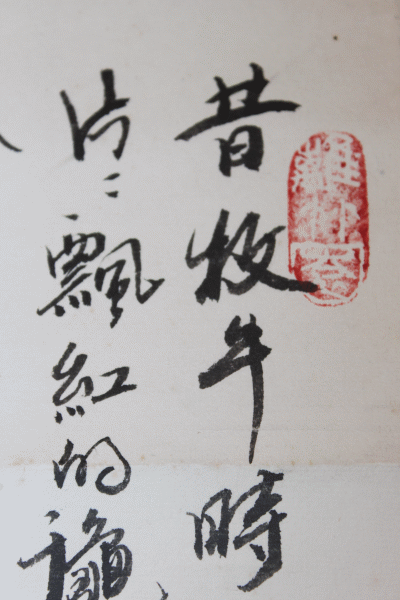 昔牧牛時
片々飄紅的